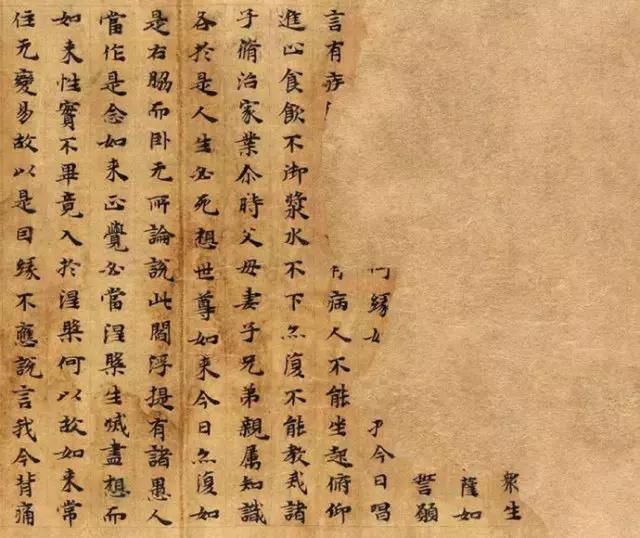 衆生
薩如
誓願
緣今日唱
言有病人不能坐起俯仰
進止食飲不御漿水不下亦復不能教戒諸
子脩治家業尒時父母妻子兄弟親屬知識
各於是人生必死想世尊如来今日亦復如
是右脇而卧无所論說此閻浮提有諸愚人
當作是念如来正覺必當涅槃生滅盡想而
如来性實不畢竟入於涅槃何以故如来常
住无變易故以是因緣不應說言我今背痛